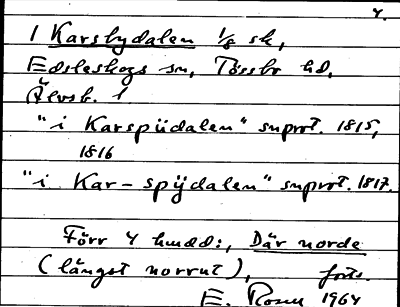 4.
1 Karsbydalen 1/8 sk,
Edsleskogs sn, Tössbo hd,
Älvsb. l
"i Karspüdalen" snprot. 1815,
1816
"i Kar-spÿdalen" snprot. 1817.
Förr 4 hmdd:, Där norde
(längst norrut), forts.
E. Rosen 1964